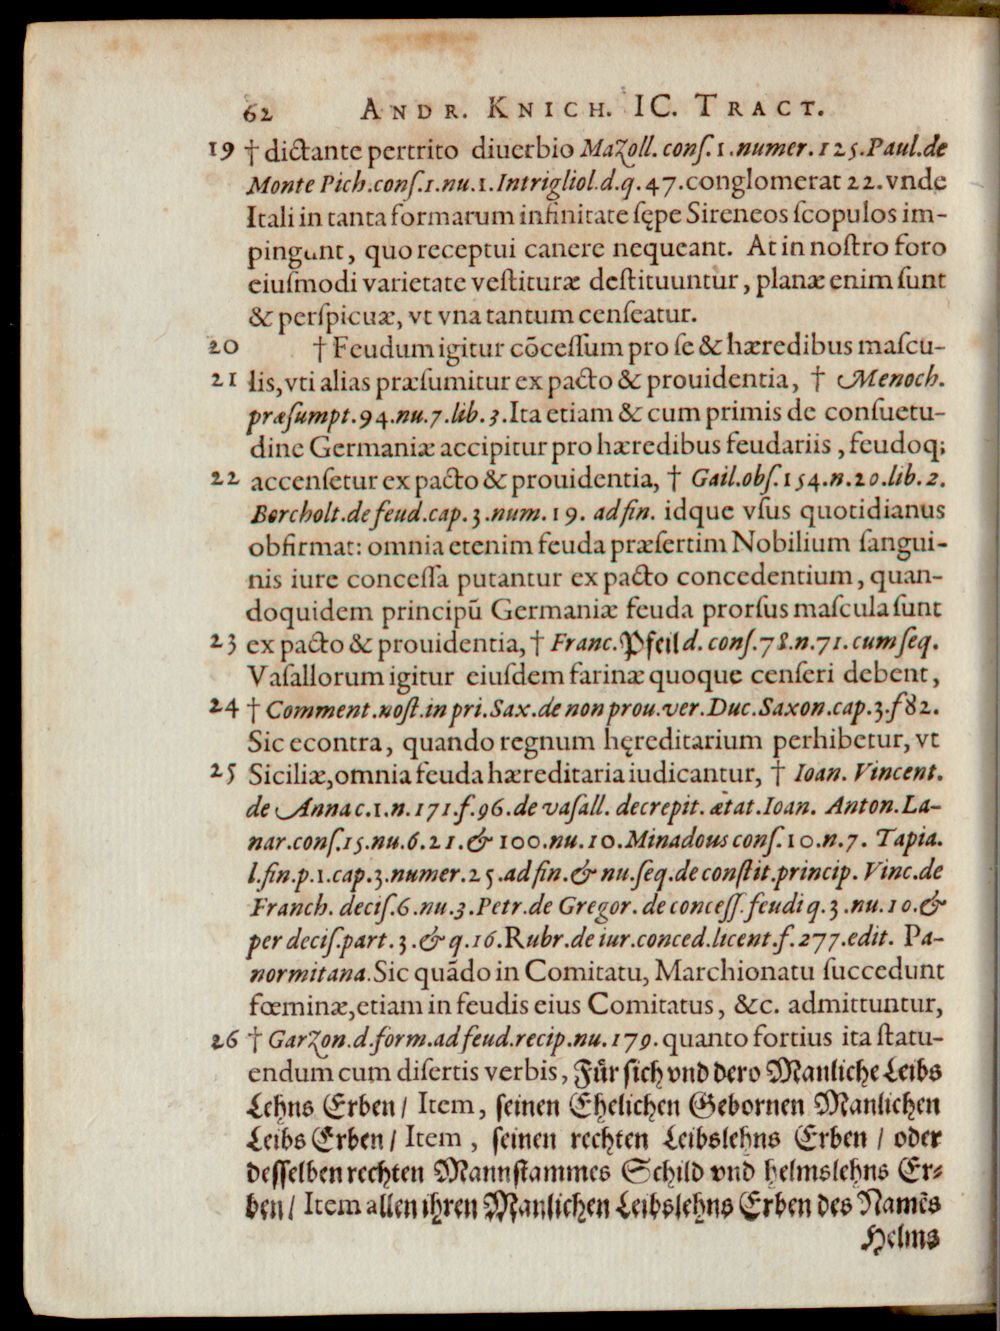 62 ANDR. KNICH. IC. TRACT.
19 † dictante pertrito diuerbio Mazoll. conſ. 1. numer. 125. Paul. de
Monte Pich. conſ. 1. nu. 1. Intrigliol. d. q. 47. conglomerat 22. vnde
Itali in tanta formarum infinitate ſępe Sireneos ſcopulos im-
pingunt, quo receptui canere nequeant. At in noſtro foro
eiuſmodi varietate veſtituræ deſtituuntur, planæ enim ſunt
& perſpicuæ, vt vna tantum cenſeatur.
20 † Feudum igitur cōceſſum pro ſe & hæredibus maſcu-
21 lis, vti alias præſumitur ex pacto & prouidentia, † Menoch.
præſumpt. 94. nu. 7. lib. 3. Ita etiam & cum primis de conſuetu-
dine Germaniæ accipitur pro hæredibus feudariis, feudoq;
22 accenſetur ex pacto & prouidentia, † Gail. obſ. 154. n. 20. lib. 2.
Borcholt. de feud. cap. 3. num. 19. ad fin. idque vſus quotidianus
obfirmat: omnia etenim feuda præſertim Nobilium ſangui-
nis iure conceſſa putantur ex pacto concedentium, quan-
doquidem principū Germaniæ feuda prorſus maſcula ſunt
23 ex pacto & prouidentia, † Franc. Pfeil d. conſ. 78. n. 71. cum ſeq.
Vaſallorum igitur eiuſdem farinæ quoque cenſeri debent,
24 † Comment. noſt. in pri. Sax. de non prou. ver. Duc. Saxon. cap. 3. f 82.
Sic econtra, quando regnum hęreditarium perhibetur, vt
25 Siciliæ, omnia feuda hæreditaria iudicantur, † Ioan. Vincent.
de Anna c. 1. n. 171. f. 96. de vaſall. decrepit. ætat. Ioan. Anton. La-
nar. conſ. 15. nu. 6. 21. & 100. nu. 10. Minadous conſ. 10. n. 7. Tapia.
l. fin. p. 1. cap. 3. numer. 25. ad fin. & nu. ſeq. de conſtit. princip. Vinc. de
Franch. deciſ. 6. nu. 3. Petr. de Gregor. de conceſſ. feudi q. 3. nu. 10. &
per deciſ. part. 3. & q. 16. Rubr. de iur. conced. licent. f. 277. edit. Pa-
normitana. Sic quādo in Comitatu, Marchionatu ſuccedunt
fœminæ, etiam in feudis eius Comitatus, &c. admittuntur,
26 † Garzon. d. form. ad feud. recip. nu. 179. quanto fortius ita ſtatu-
endum cum diſertis verbis, Für ſich vnd dero Manliche Leibs
Lehns Erben / Item, ſeinen Ehelichen Gebornen Manlichen
Leibs Erben / Item, ſeinen rechten Leibslehns Erben / oder
deſſelben rechten Mannſtammes Schild vnd helmslehns Er-
ben / Item allen ihren Manlichen Leibslehns Erben des Namēs
Helms